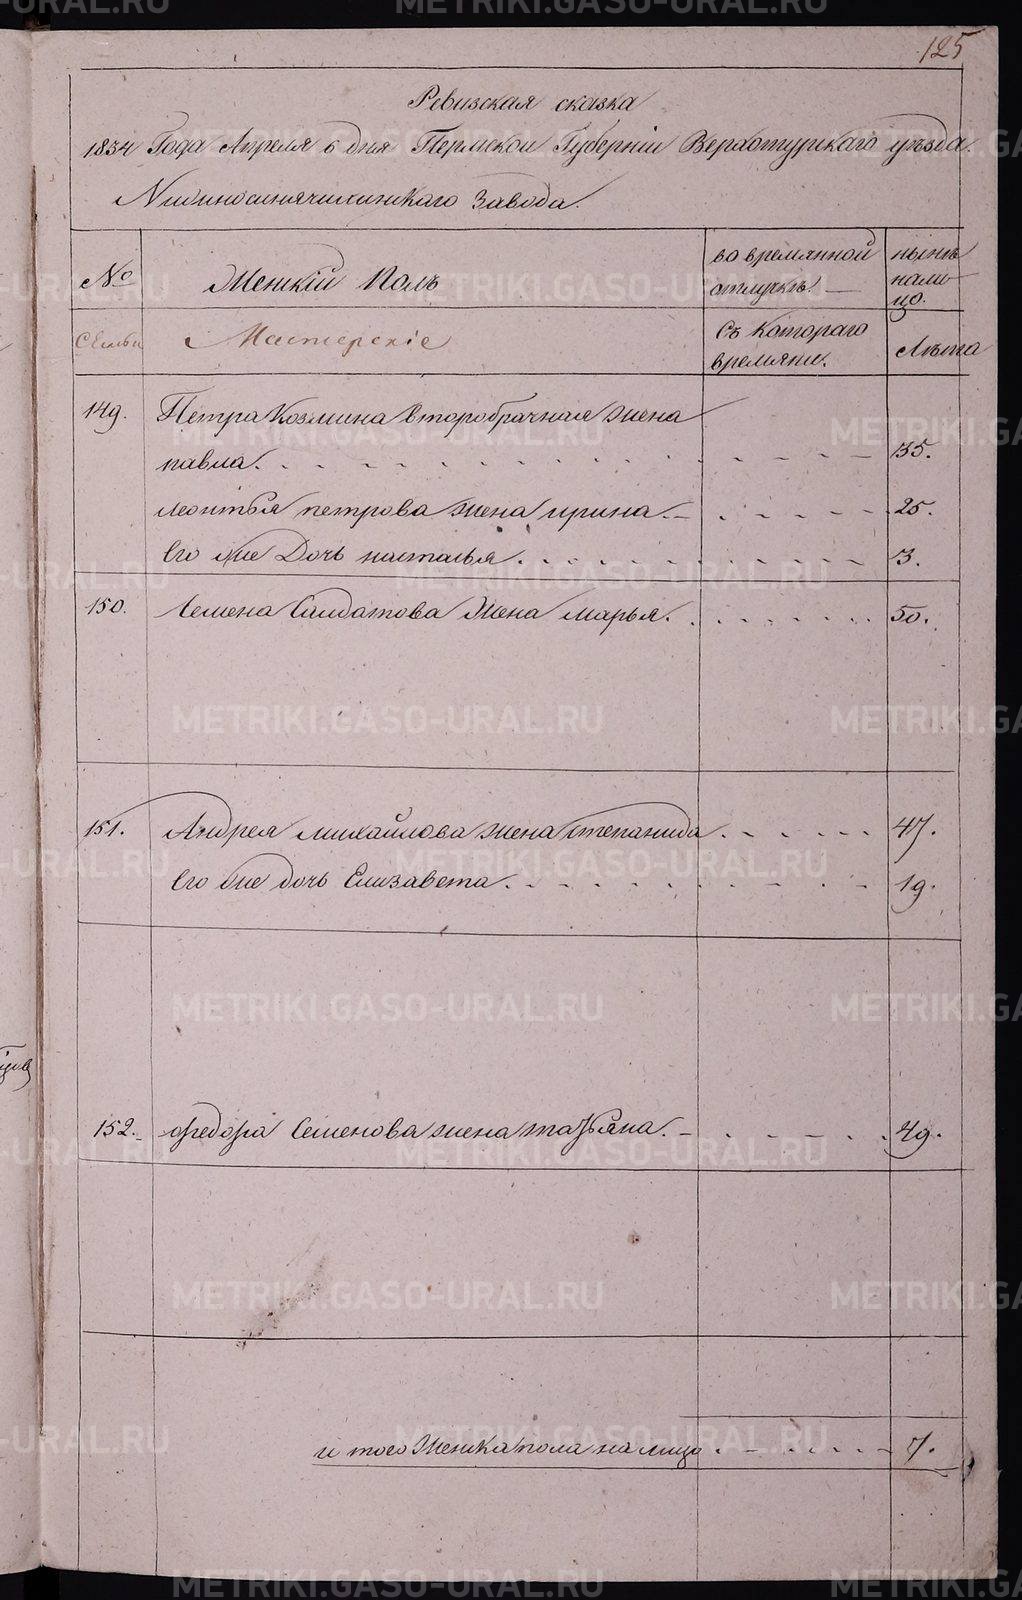 125
Ревизская сказка
1834 Года Апреля 6 дня Пермской Губерніи Верхотурскаго уѣзда
Нижносинячихинскаго завода.
№ Женскій Полъ во времянной отлучкѣ. нынѣ налицо.
Семьи Мастерскіе Съ котораго времяни. Лѣта
149. Петра Козмина второбрачная жена
павла. 35.
леонтья петрова жена ирина. 25.
Его же Дочь наталья. 3.
150. Семена Салдатова Жена марья. 50.
151. Андрея михайлова жена степанида 47.
Его же дочь Елизавета. 19.
152. федора Семенова жена татьяна. 49.
и того Женска пола налицо 7.
METRIKI.GASO-URAL.RU